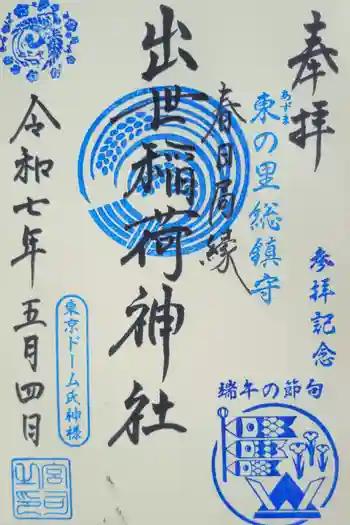 奉拝
東の里総鎮守
あずま
参拝記念
春日局縁
出世稲荷神社
令和七年五月四日
東京ドーム氏神様
端午の節句
宮司之印